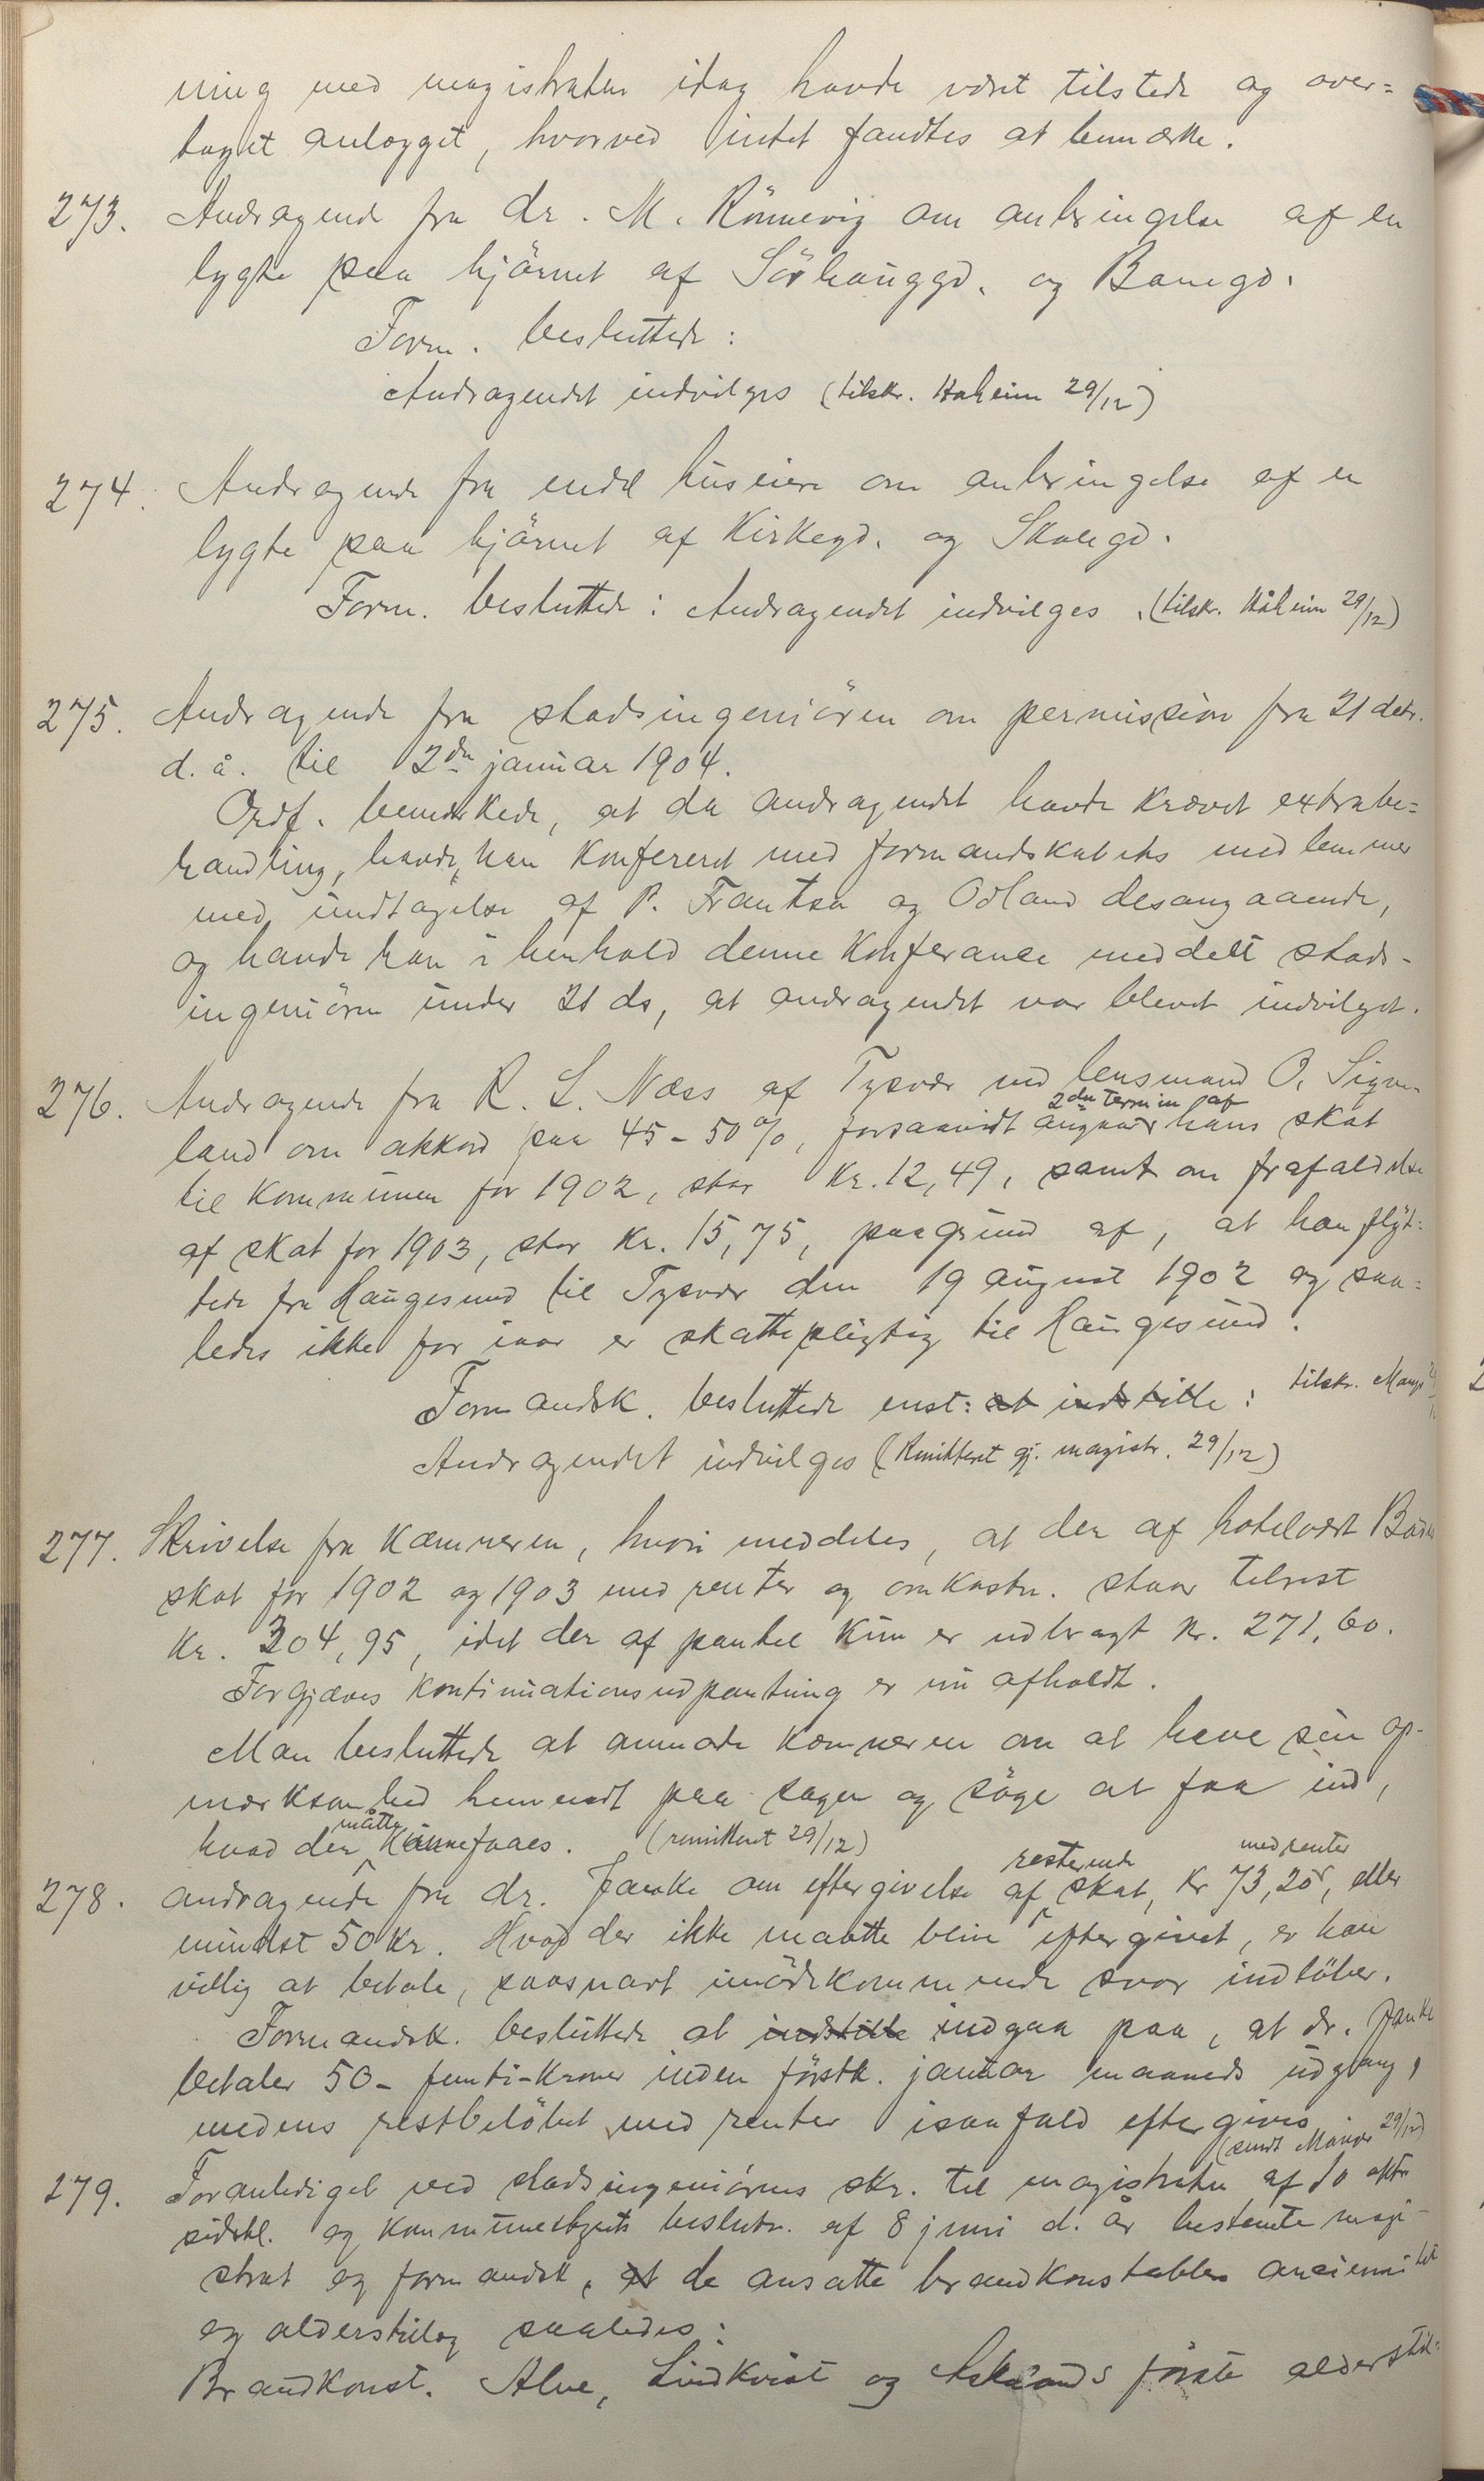 ning med magistraten idag havde været tilstede og over=
taget anlægget, hvorved intet fandtes at bemærke.
273. Andragende fra dr. M. Rönnevig om anbringelse af en
lygte paa hjörnet af Sörhauggd. og Banegd.
Form. besluttede:
Andragendet indvilges (tilskr. Haheim 29/12)
274. Andragende fra endel huseiere om anbringelse af en
lygte paa hjörnet af Kirkegd. og Skolegd.
Form. besluttede: Andragendet indvilges. (tilskr. Håheim 29/12)
275. Andragende fra stadsingeniören om permission fra 21 debr.
d. å. til 2den januar 1904.
Ordf. bemærkede, at da andragendet havde krævet extrabe=
handling, havde han konfereret med formandskabets medlemmer
med undtagelse af P. Frantsen og Odland desangaaende,
og havde han i henhold denne konferance meddelt stads-
ingeniören under 21 ds, at andragendet var blevet indvilget.
276. Andragende fra R. L. Næss af Tysvær ved lensmand O. Signe-
land om akkord paa 45-50%, forsaavidt angaar 2den termin af hans skat
til kommunen for 1902, stor kr. 12,49, samt om frafaldelse
af skat for 1903, stor kr. 15,75, paagrund af, at han flyt=
tede fra Haugesund til Tysvær den 19 august 1902 og saa=
ledes ikke for iaar er skattepligtig til Haugesund.
Formandsk. besluttede enst: at indstille: tilskr.
Andragendet indvilges (Remitteret gj. magistr. 29/12)
277. Skrivelse fra kæmneren, hvori meddeles, at der af hotelvært
skat for 1902 og 1903 med renter og omkostn. staar tilrest
kr. 304,95, idet der af pantet kun er udbragt kr. 271,60.
Forgjæves kontinuationsudpantning er nu afholdt.
Man besluttede at anmode kæmneren om at have sin op-
mærksomhed henvendt paa sagen og söge at faa ind,
hvad der måtte kunne faaes. (remitteret 29/12)
278. andragende fra dr. Janke om eftergivelse af resterende skat, kr 73,20 med renter, eller
mindst 50 kr. Hvad der ikke maatte blive eftergivet, er han
villig at betale, saasnart imödekommende svar indlöber.
Formandsk. besluttede at indstille indgaa paa, at dr. Janke
betaler 50 - femti - kroner inden förstk. januar maaneds udgang,
medens restbelöbet med renter isaafald eftergives.
(sendt 29/12)
279. Foranlediget ved stadsingeniörens skr. til magistraten af 10 oktr
sidstl. og kommunestyrets beslutn. af 8 juni d. år bestemte magi-
strat og formandsk. at de ansatte brandkonstabler ancienni-
og alderstillæg saaledes:
Brandkonst. Alve, Lindkvist og förste alderstil=